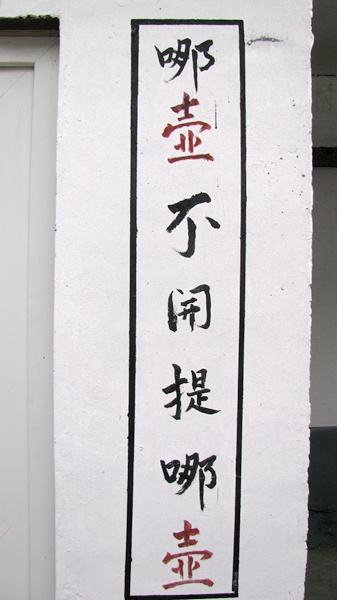 哪壶不开提哪壶